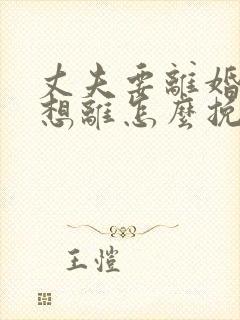 丈夫要離婚
想離怎麼挽
王愷